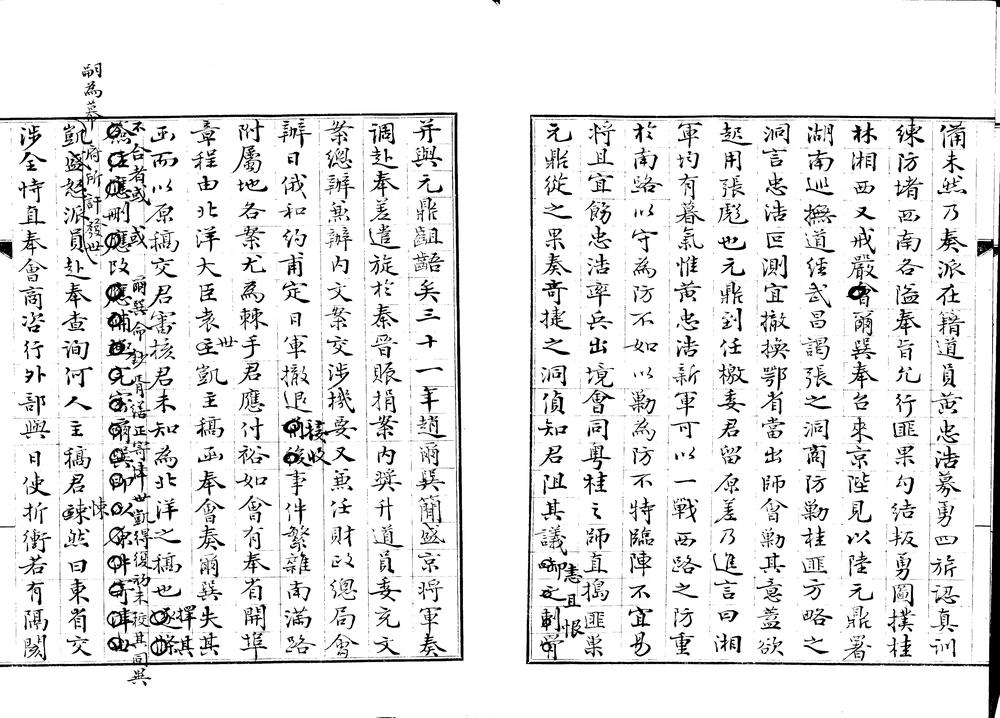 備未然乃奏派在籍道員黃忠浩募勇四旂認真訓
練防堵西南各隘奉旨允行匪果勾結叛勇圖撲桂
林湘西又戒嚴會爾巽奉召來京陛見以陸元鼎署
湖南巡撫道經武昌謁張之洞商防勦桂匪方略之
洞言忠浩叵測宜撤換鄂省當出師會勦其意蓋欲
起用張彪也元鼎到任檄委君留原差乃進言曰湘
軍均有暮氣惟黃忠浩新軍可以一戰西路之防重
於南路以守為防不如以勦為防不特臨陣不宜易
將且宜飭忠浩率兵出境會同粵桂之師直搗匪巢
元鼎從之果奏奇捷之洞偵知君阻其議
恚且恨
并與元鼎齟齬矣三十一年趙爾巽簡盛京將軍奏
調赴奉差遣旋於秦晉賑捐案內獎升道員委充文
案總辦兼辦內文案交涉機要又兼任財政總局會
辦日俄和約甫定日軍撤退接收事件繁雜南滿路
附屬地各案尤為棘手君應付裕如會有奉省開埠
章程由北洋大臣袁世凱主稿函奉會奏爾巽失其
函而以原稿交君審核君未知為北洋之稿也擇其
不合者或刪或改
爾巽命鈔胥繕正寄津世凱得復初未校其同異
嗣為幕府所訐發世
凱盛怒派員赴奉查詢何人主稿君悚然曰東省交
涉全恃直奉會商咨行外部與日使折衝若有隔閡